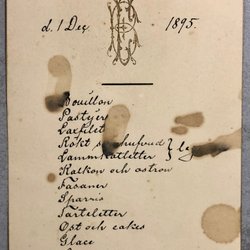 d. 1 Dec. 1895.
Bouillon
Pastejer
Laxfilet
Rökt
Lammkotletter }
Kalkon och ostron
Fasaner
Sparris
Tarteletter
Ost och cakes
Glace